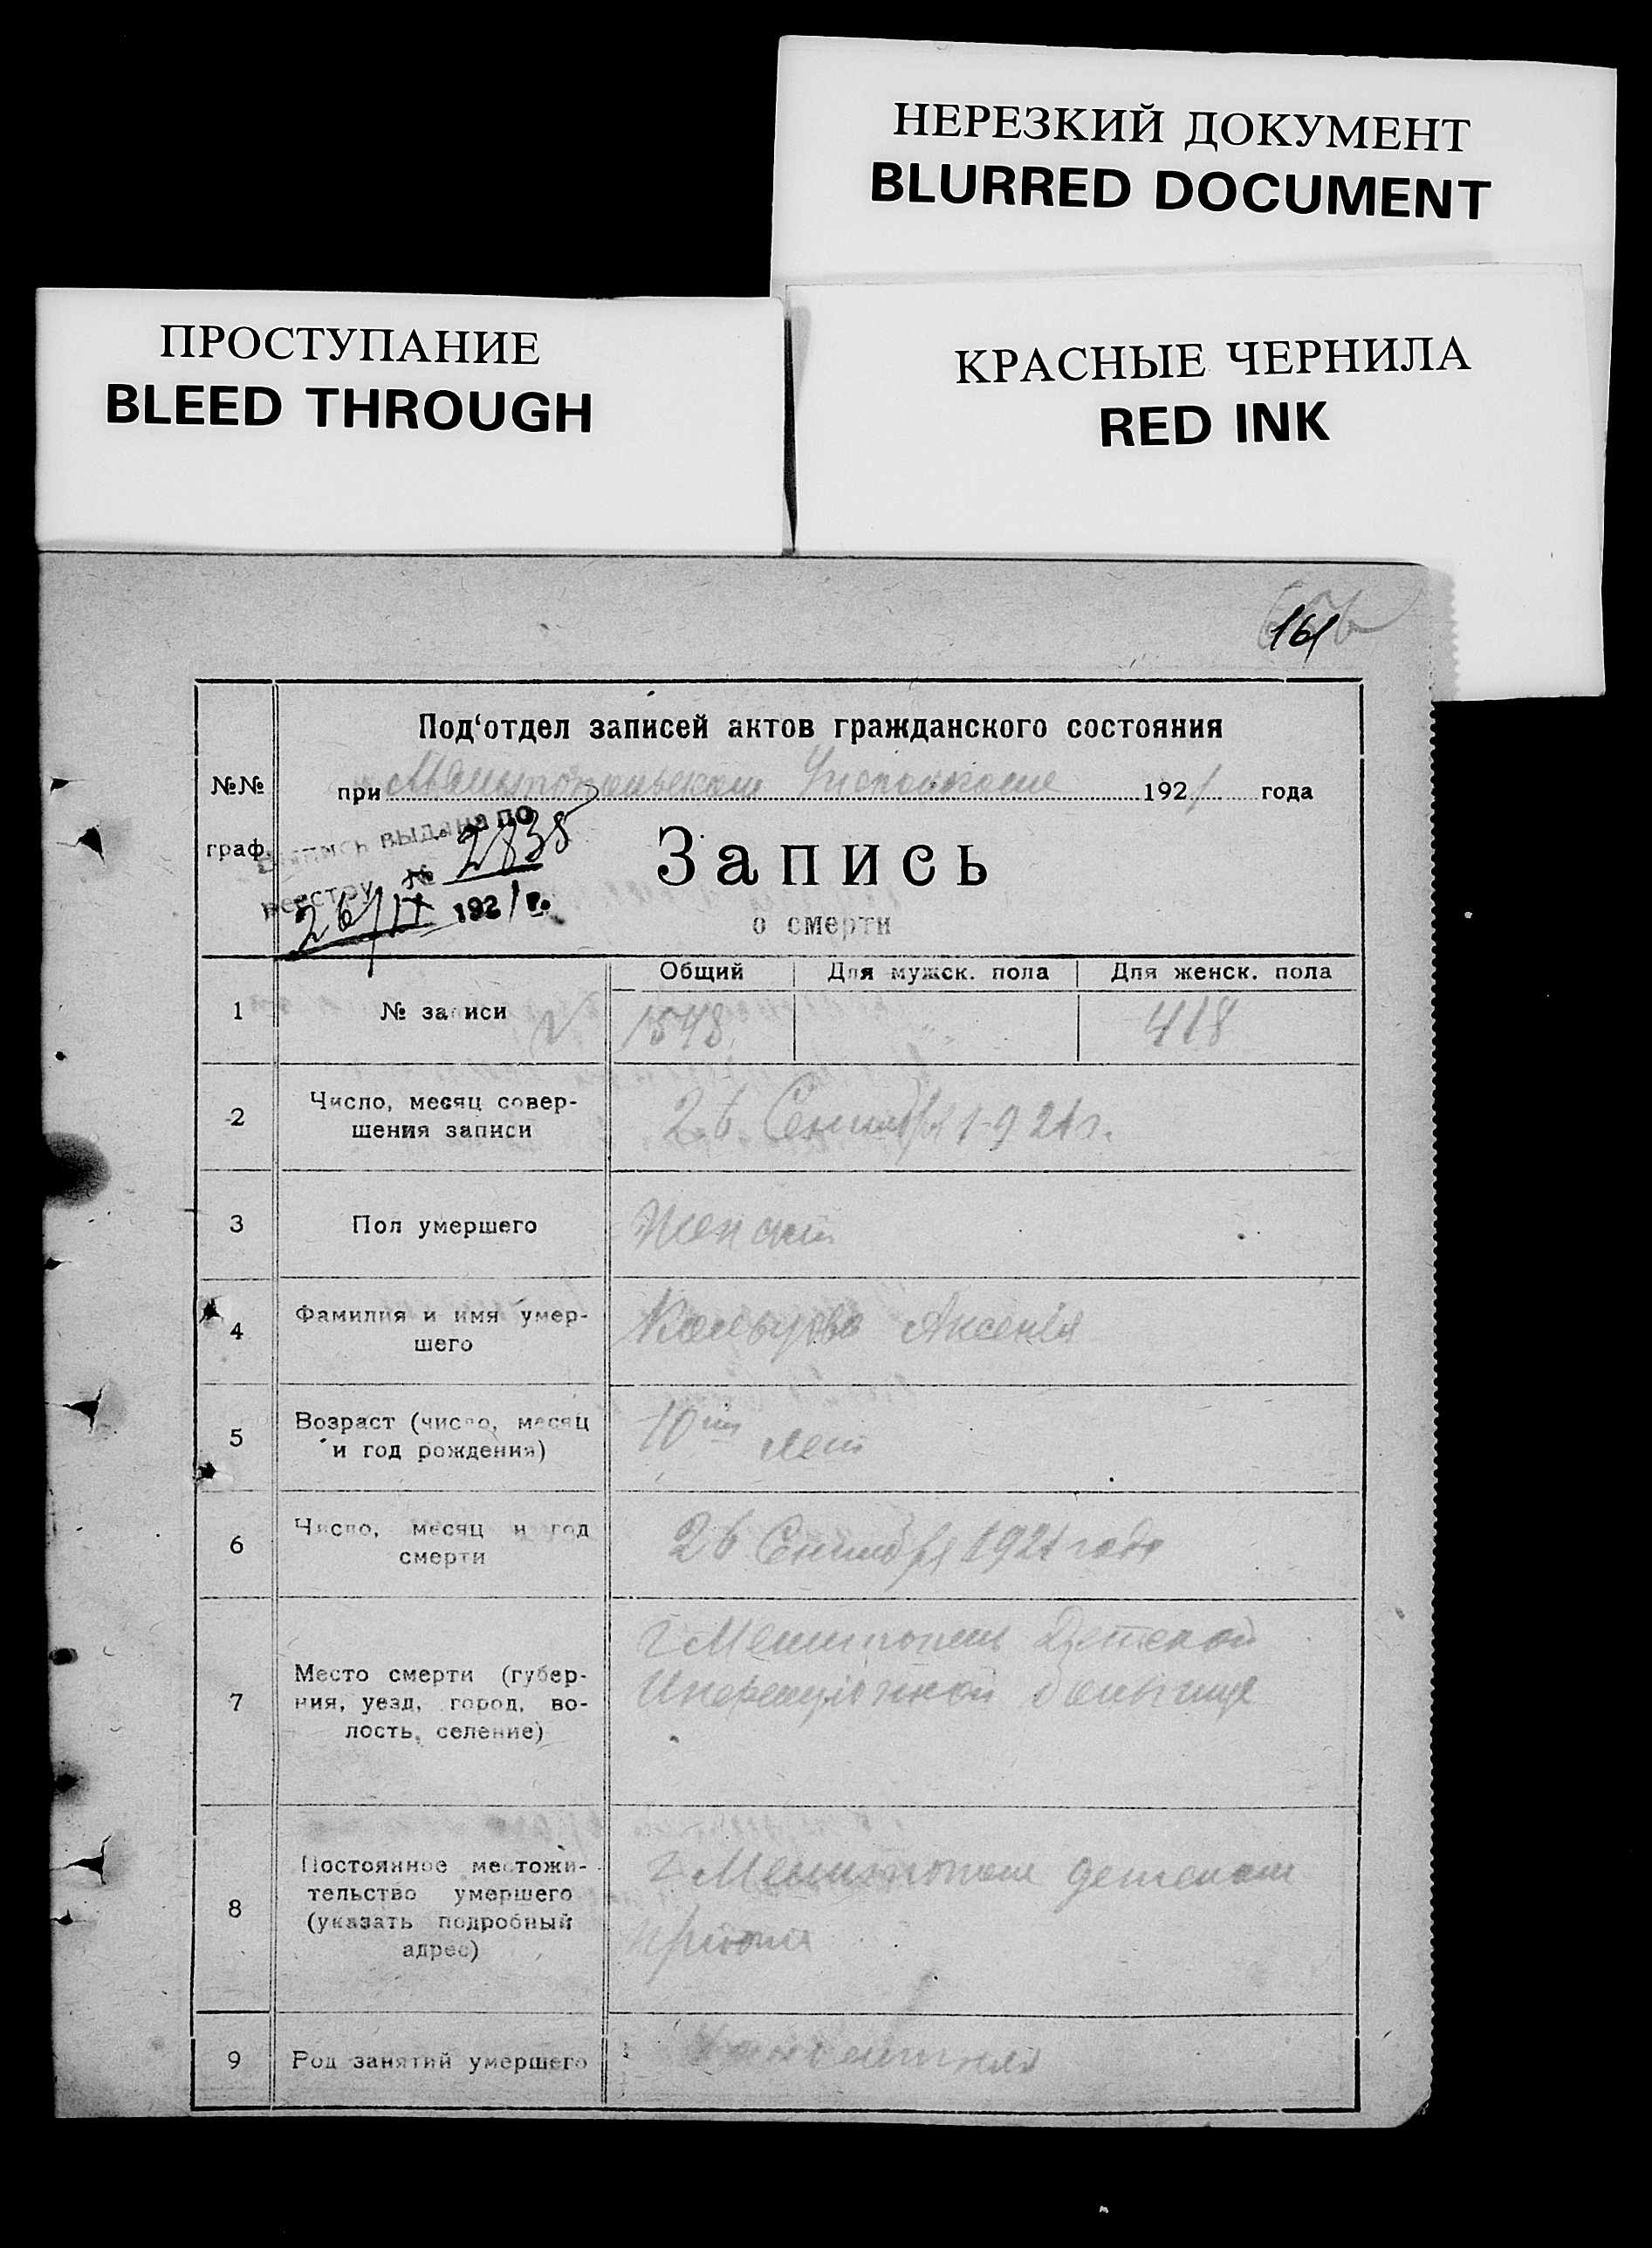 НЕРЕЗКИЙ ДОКУМЕНТ
BLURRED DOCUMENT
ПРОСТУПАНИЕ
BLEED THROUGH
КРАСНЫЕ ЧЕРНИЛА
RED INK
161
Под‘отдел записей актов гражданского состояния
№№ граф.
при 1921 года
выдана по
реестру № 2838
26/IX 1921 г.
Запись
о смерти
Общий Для мужск. пола Для женск. пола
1 № записи 1548 " 418
2 Число, месяц совер-
шения записи
26 Сентября 1921 г.
3 Пол умершего
4 Фамилия и имя умер-
шего
Аксенія
5 Возраст (число, месяц
и год рождения)
10 лет
6 Число, месяц и год
смерти
26 Сентября 1921 года
7 Место смерти (губер-
ния, уезд, город, во-
лость, селение)
г Мелитополь Детской
больнице
8 Постоянное местожи-
тельство умершего
(указать подробный
адрес)
г Мелитополь детском
приюте
9 Род занятий умершего